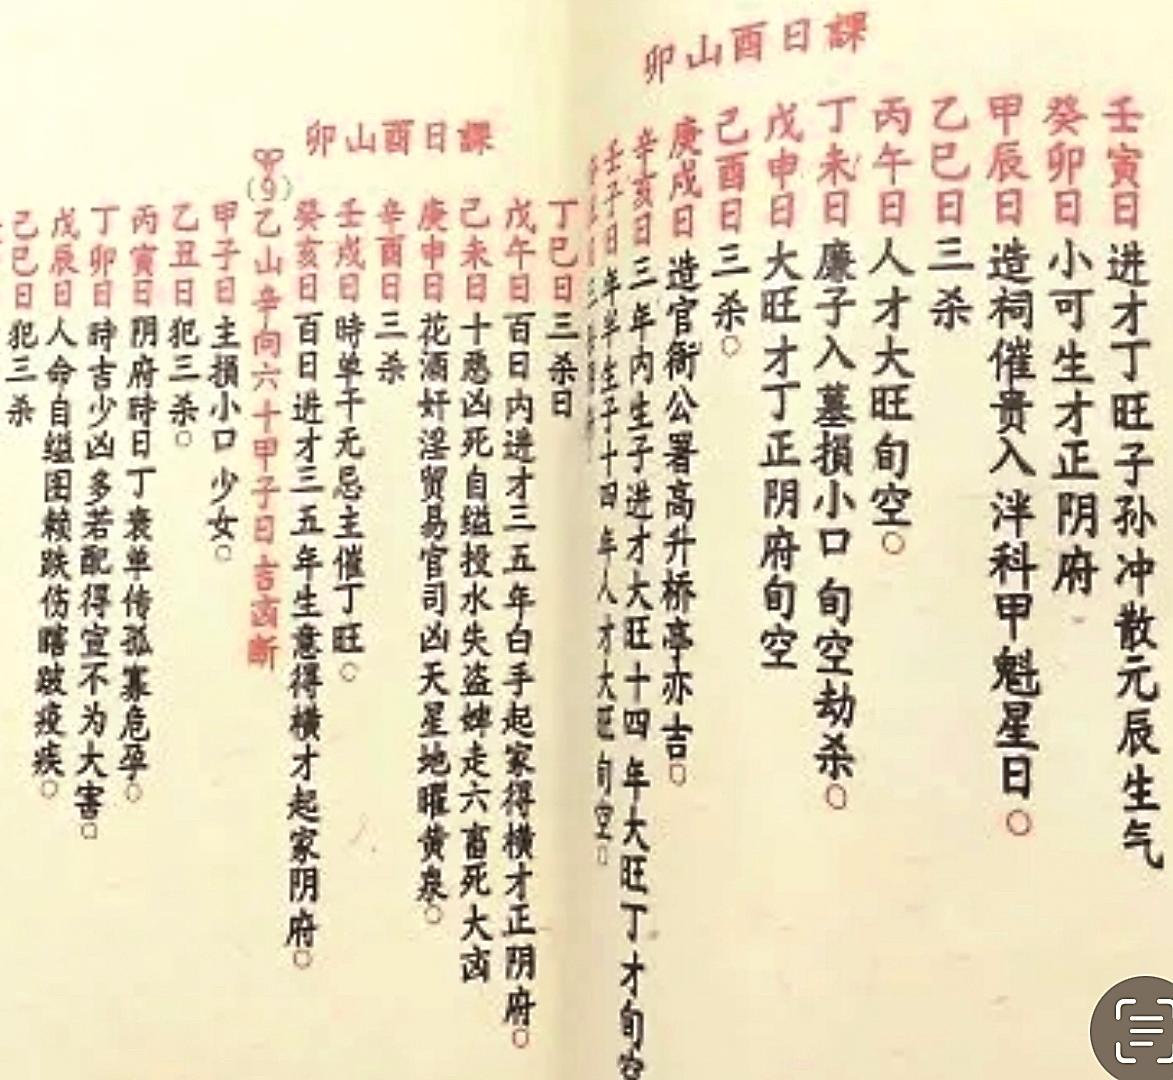 卯山酉日課
壬寅日 进才丁旺子孙冲散元辰生气
癸卯日 小可生才正阴府
甲辰日 造祠催贵入泮科甲魁星日○
乙巳日 三杀
丙午日 人才大旺旬空○
丁未日 廉子入墓損小口旬空劫杀○
戊申日 大旺才丁正阴府旬空
己酉日 三杀○
庚戍日 造官衙公署高升桥亭亦吉○
辛亥日 三年内生子进才大旺十四年大旺丁才旬空
壬子日 年半生子十四年人才大旺旬空○
卯山酉日課
丁巳日 三杀日
戊午日 百日内进才三五年白手起家得横才正阴府○
己未日 十悪凶死自缢投水失盗婢走六畜死大凶
庚申日 花酒奸淫贸易官司凶天星地曜黄泉○
辛酉日 三杀
壬戍日 時单干无忌主催丁旺○
癸亥日 百日进才三五年生意得横才起家阴府○
(9)乙山辛向六十甲子日吉凶断
甲子日 主損小口少女○
乙丑日 犯三杀○
丙寅日 阴府時日丁衰单传孤寡危孕○
丁卯日 時吉少凶多若配得宣不为大害○
戊辰日 人命自缢图赖跌伤瞎跛疫疾○
己巳日 犯三杀